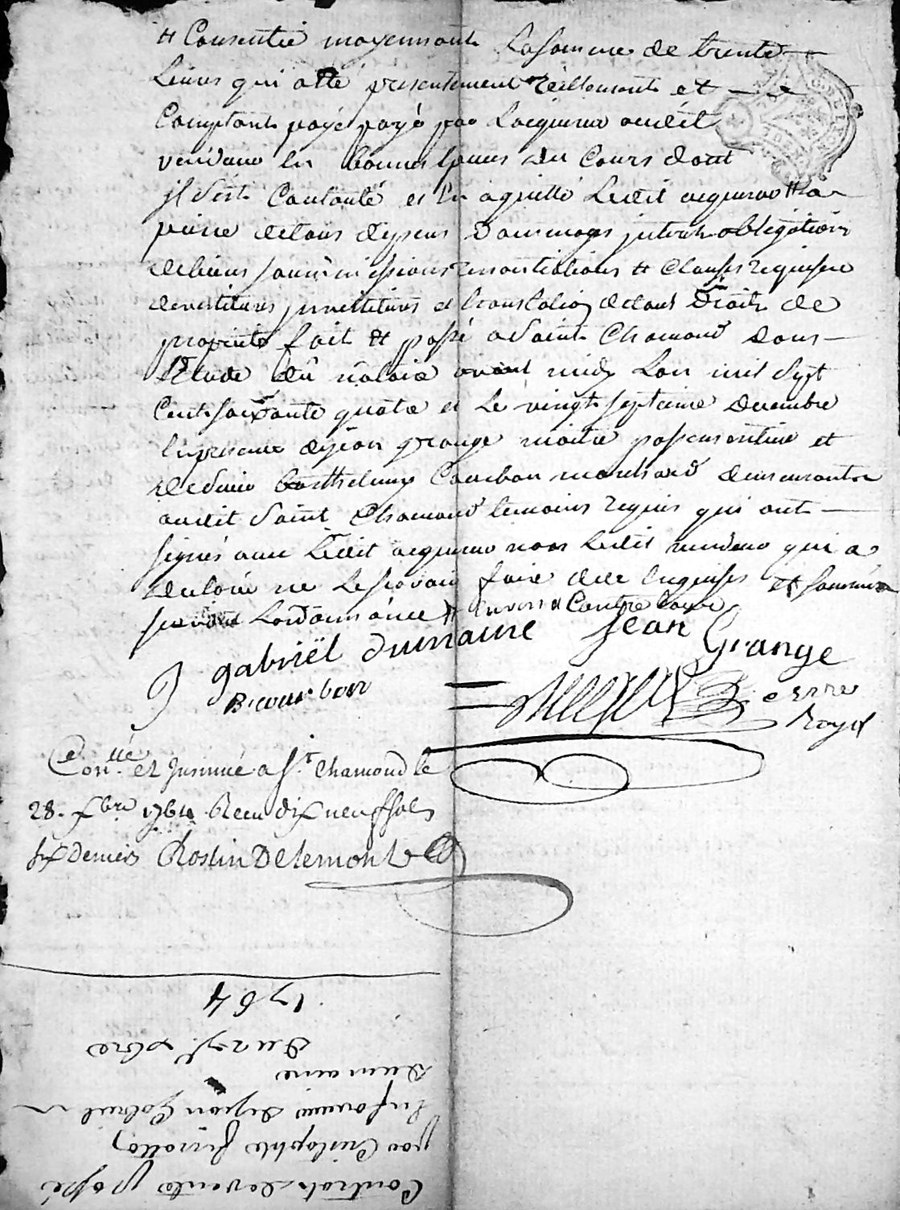 & Consentie moyennant la somme de trente
livres qui a esté presentement réellement et
Comptant payé payé par l'acquereur audit
vendeur en bonnes espèces du Cours dont
il s'est Contanté et en a quitté ledit acquereur & a
peine de tous depens dommages interets obligations
de biens soumissions renonciations & clauses requises
devestitures investitures et translation de tous droits de
propriété fait & passé a Saint Chamond dans
l'étude du notaire avant midy L'an mil sept
Cent soixante quatre et le vingt septieme decembre
En presence de jean grange maitre passementier et
de Sieur Barthelemy Courbon marchand demeurants
audit Saint Chamond temoins requis qui ont
signés avec Ledit acquereur non Ledit vendeur qui a
declaré ne le sçavoir faire de ce enquis et sommé
suivant Lordonnance &
J gabriël dumaine Jean Grange
B courbon
Pierre
Con.lle et Insinué a S.t Chamond le
28. xbre 1764 Receu dix neuf sols
six deniers Rostin Delemont
Contrat de vente passé
par Cristophle
En faveur de jean Gabriel
dumaine
Du 27.e xbre
1764